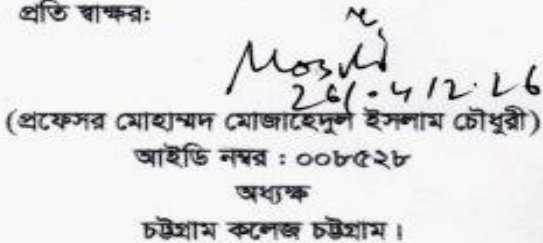 প্রতি স্বাক্ষরঃ
(প্রফেসর মোহাম্মদ মোজাহেদুল ইসলাম চৌধুরী)
আইডি নম্বর : ০০৮৫২৮
অধ্যক্ষ
চট্টগ্রাম কলেজ চট্টগ্রাম।